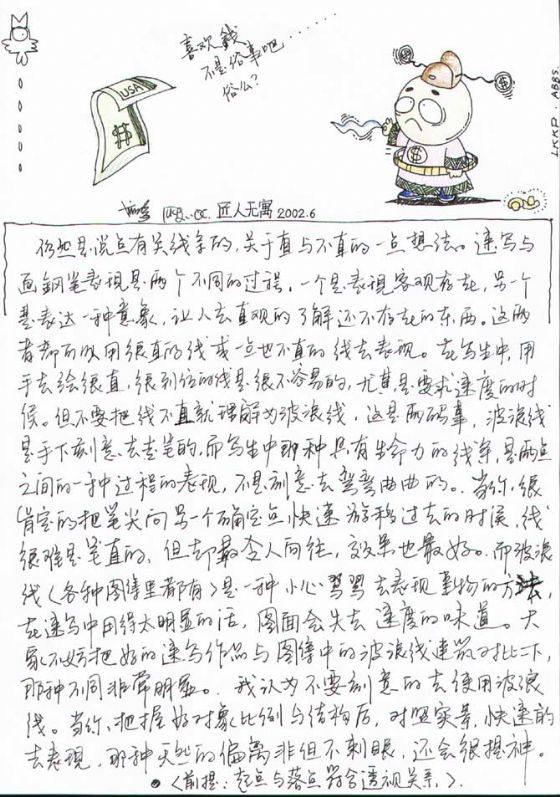 喜欢钱
不是俗事吧......
俗么?
USA
$
$
$
$
LKKP . ABBS.
匠人无寓 2002.6
仍然是说点有关线条的,关于直与不直的一点想法。速写与
画钢笔表现是两个不同的过程,一个是表现客观存在,另一个
是表达一种意象,让人去直观的了解还不存在的东西。这两
者都可以用很直的线或一点也不直的线去表现。在写生中,用
手去绘很直,很到位的线是很不容易的,尤其是要求速度的时
候。但不要把线不直就理解为波浪线,这是两码事,波浪线
是手下刻意去走笔的,而写生中那种具有生命力的线条,是两点
之间的一种过程的表现,不是刻意去弯弯曲曲的。当你很
肯定的把笔尖向另一个确定点快速游移过去的时候,线
很难是笔直的,但却最令人向往,效果也最好。而波浪
线(各种图得里都有)是一种小心翼翼去表现事物的方法,
在速写中用得太明显的话,图面会失去速度的味道。大
家不妨把好的速写作品与图得中的波浪线建筑对比一下,
那种不同非常明显。我认为不要刻意的去使用波浪
线。当你把握好对象比例与结构后,对照实景,快速的
去表现,那种天然的偏离非但不刺眼,还会很提神。
(前提:起点与落点符合透视关系。)